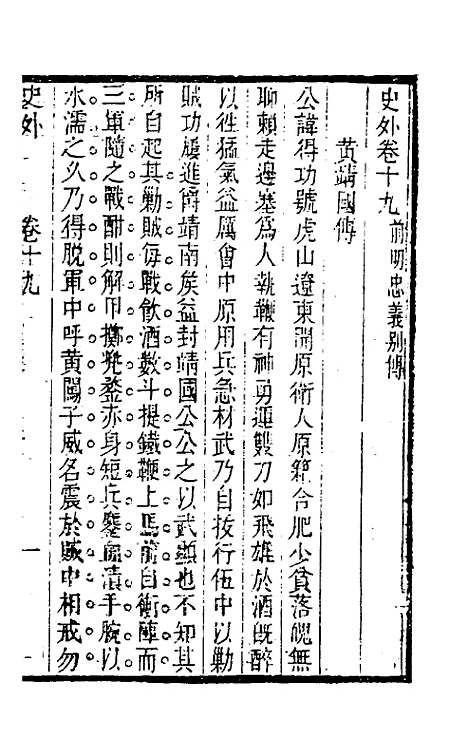 史外卷十九 前明忠義別傳
黃靖國傳
公諱得功號虎山遼東開原衛人原籍合肥少貧落魄無
聊賴走邊塞為人執鞭有神勇運雙刀如飛雄於酒旣醉
以往猛氣益厲會中原用兵急材武乃自拔行伍中以勦
賊功屢進爵靖南矦益封靖國公公之以武顯也不知其
所自起其勦賊每戰飲酒數斗提鐵鞭上馬前自衝陣而
三軍隨之戰酣則解甲擲兜鍪亦身短兵鏖血漬手腕以
水濡之久乃得脫軍中呼黃闖子威名震於賊中相戒勿
史外
卷十九
一